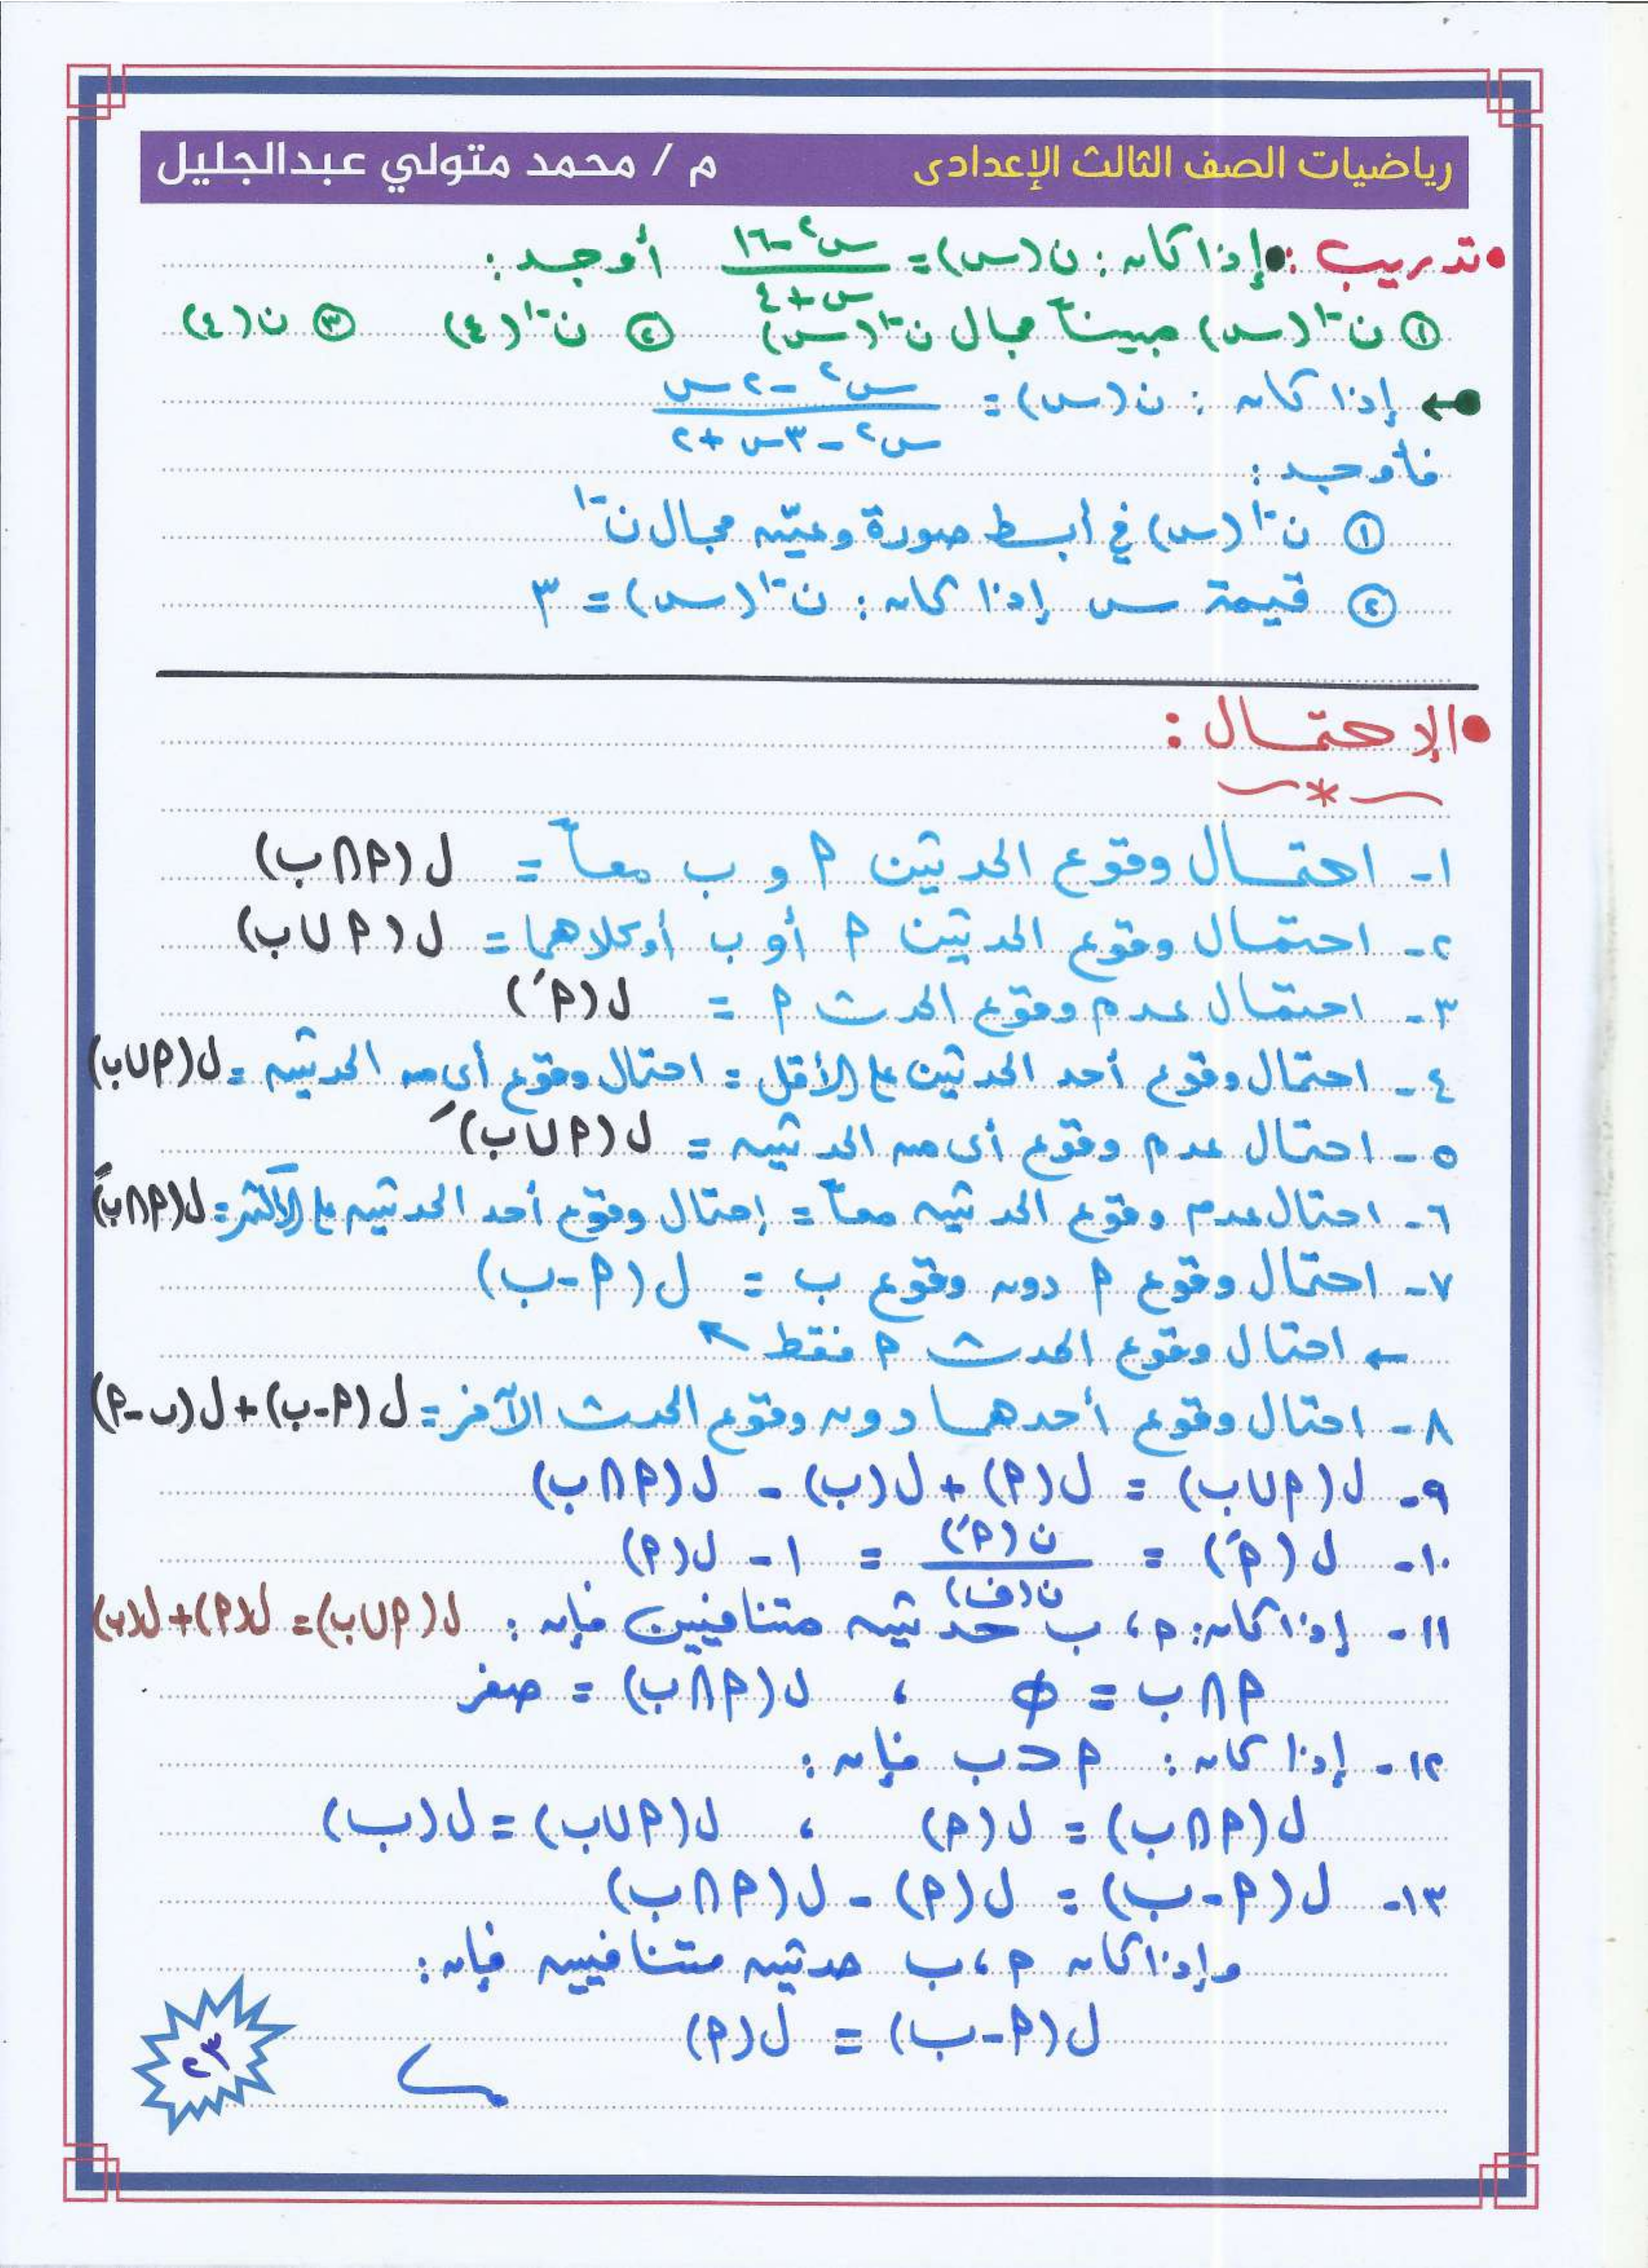 رياضيات الصف الثالث الإعدادى
م / محمد متولي عبدالجليل
• تدريب : • إذا كان : ن(س) = (س² - ١٦) / (س + ٤) أوجد :
① ن⁻¹(س) مبيناً مجال ن⁻¹(س) ② ن⁻¹(٤) ③ ن(٤)
← إذا كان : ن(س) = (س² - ٢س) / (س² - ٣س + ٢)
فأوجد :
① ن⁻¹(س) في أبسط صورة وعيّن مجال ن⁻¹
② قيمة س إذا كان : ن⁻¹(س) = ٣
• الإحتمال :
١- احتمال وقوع الحدثين م و ب معاً = ل(م ∩ ب)
٢- احتمال وقوع الحدثين م أو ب أو كلاهما = ل(م ∪ ب)
٣- احتمال عدم وقوع الحدث م = ل(م́)
٤- احتمال وقوع أحد الحدثين على الأقل = احتمال وقوع أى من الحدثين = ل(م ∪ ب)
٥- احتمال عدم وقوع أى من الحدثين = ل(م ∪ ب)́
٦- احتمال عدم وقوع الحدثين معاً = إحتمال وقوع أحد الحدثين على الأكثر = ل(م ∩ ب)́
٧- احتمال وقوع م دون وقوع ب = ل(م - ب)
← احتمال وقوع الحدث م فقط ↖
٨- احتمال وقوع أحدهما دون وقوع الحدث الآخر = ل(م - ب) + ل(ب - م)
٩- ل(م ∪ ب) = ل(م) + ل(ب) - ل(م ∩ ب)
١٠- ل(م́) = ن(م́) / ن(ف) = ١ - ل(م)
١١- إذا كان: م، ب حدثين متنافيين فإن : ل(م ∪ ب) = ل(م) + ل(ب)
م ∩ ب = ∅ ، ل(م ∩ ب) = صفر
١٢- إذا كان : م ⊂ ب فإن :
ل(م ∩ ب) = ل(م) ، ل(م ∪ ب) = ل(ب)
١٣- ل(م - ب) = ل(م) - ل(م ∩ ب)
وإذا كان م، ب حدثين متنافيين فإن :
ل(م - ب) = ل(م)
٢٣